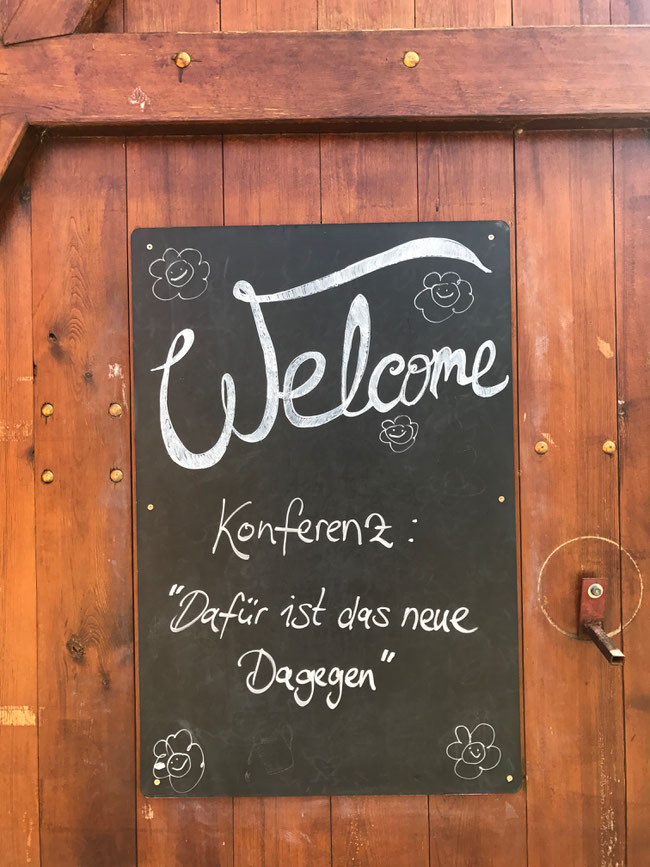 Welcome
Konferenz:
"Dafür ist das neue
Dagegen"